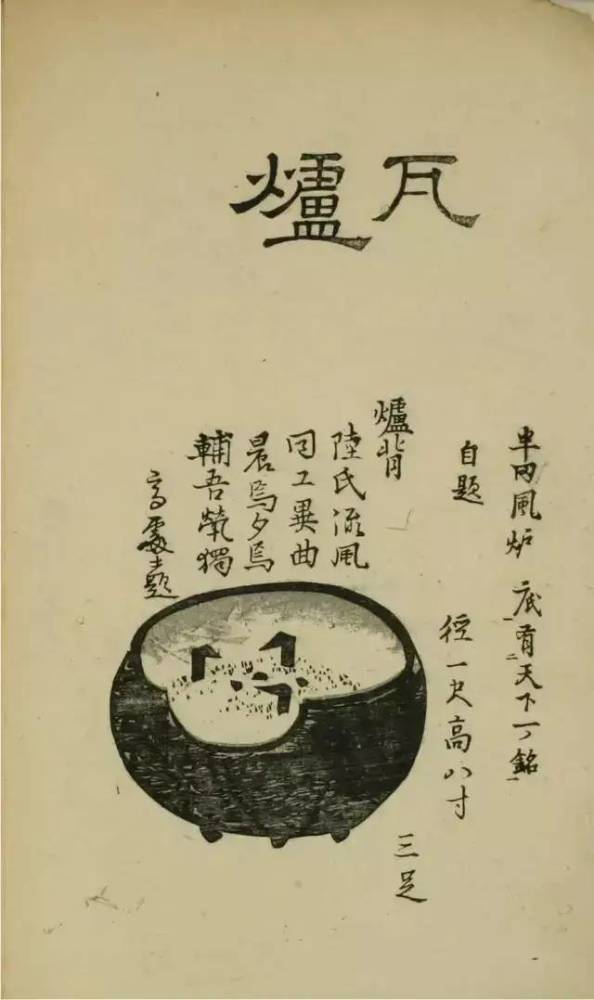 瓦爐
風炉 底有天下一ノ銘
自題
径一尺高八寸
三足
爐背
陸氏流風
同工異曲
晨焉夕焉
輔吾煢獨
高處士題